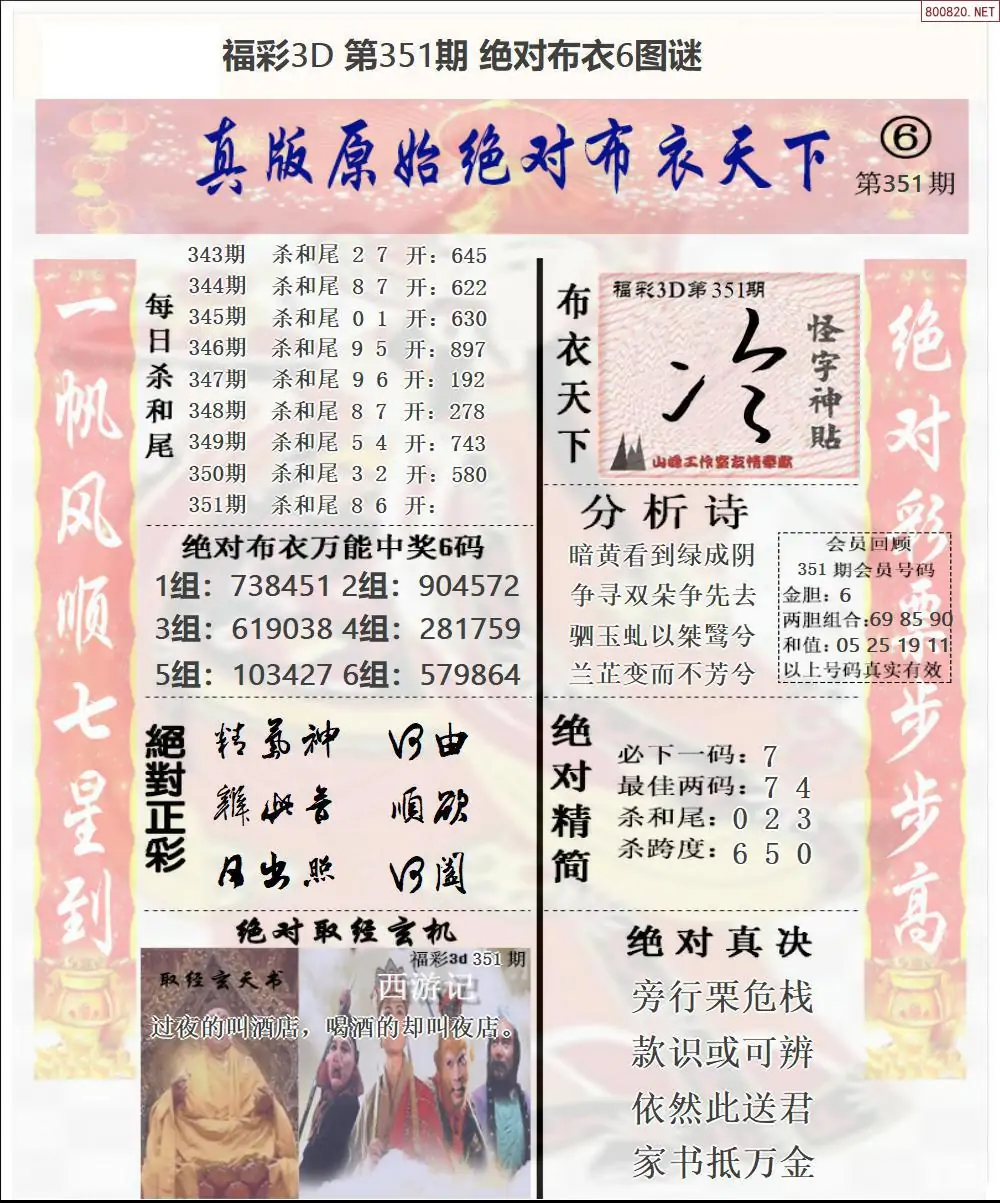 800820.NET
福彩3D 第351期 绝对布衣6图谜
真版原始绝对布衣天下
⑥
第351期
一帆风顺七星到
每日杀和尾
343期 杀和尾 2 7 开: 645
344期 杀和尾 8 7 开: 622
345期 杀和尾 0 1 开: 630
346期 杀和尾 9 5 开: 897
347期 杀和尾 9 6 开: 192
348期 杀和尾 8 7 开: 278
349期 杀和尾 5 4 开: 743
350期 杀和尾 3 2 开: 580
351期 杀和尾 8 6 开:
绝对布衣万能中奖6码
1组：738451 2组：904572
3组：619038 4组：281759
5组：103427 6组：579864
絕對正彩
精氣神 何由
難此音 順欲
日出照 何闔
绝对取经玄机
福彩3d 351期
取经玄天书
西游记
过夜的叫酒店，喝酒的却叫夜店。
布衣天下
福彩3D第351期
冷
怪字神貼
山峰工作室友情奉献
分析诗
暗黄看到绿成阴
争寻双朵争先去
驷玉虬以桀鹥兮
兰芷变而不芳兮
会员回顾
351期会员号码
金胆：6
两胆组合:69 85 90
和值：05 25 19 11
以上号码真实有效
绝对精简
必下一码：7
最佳两码：7 4
杀和尾：0 2 3
杀跨度：6 5 0
绝对真决
旁行栗危栈
款识或可辨
依然此送君
家书抵万金
绝对彩票步步高